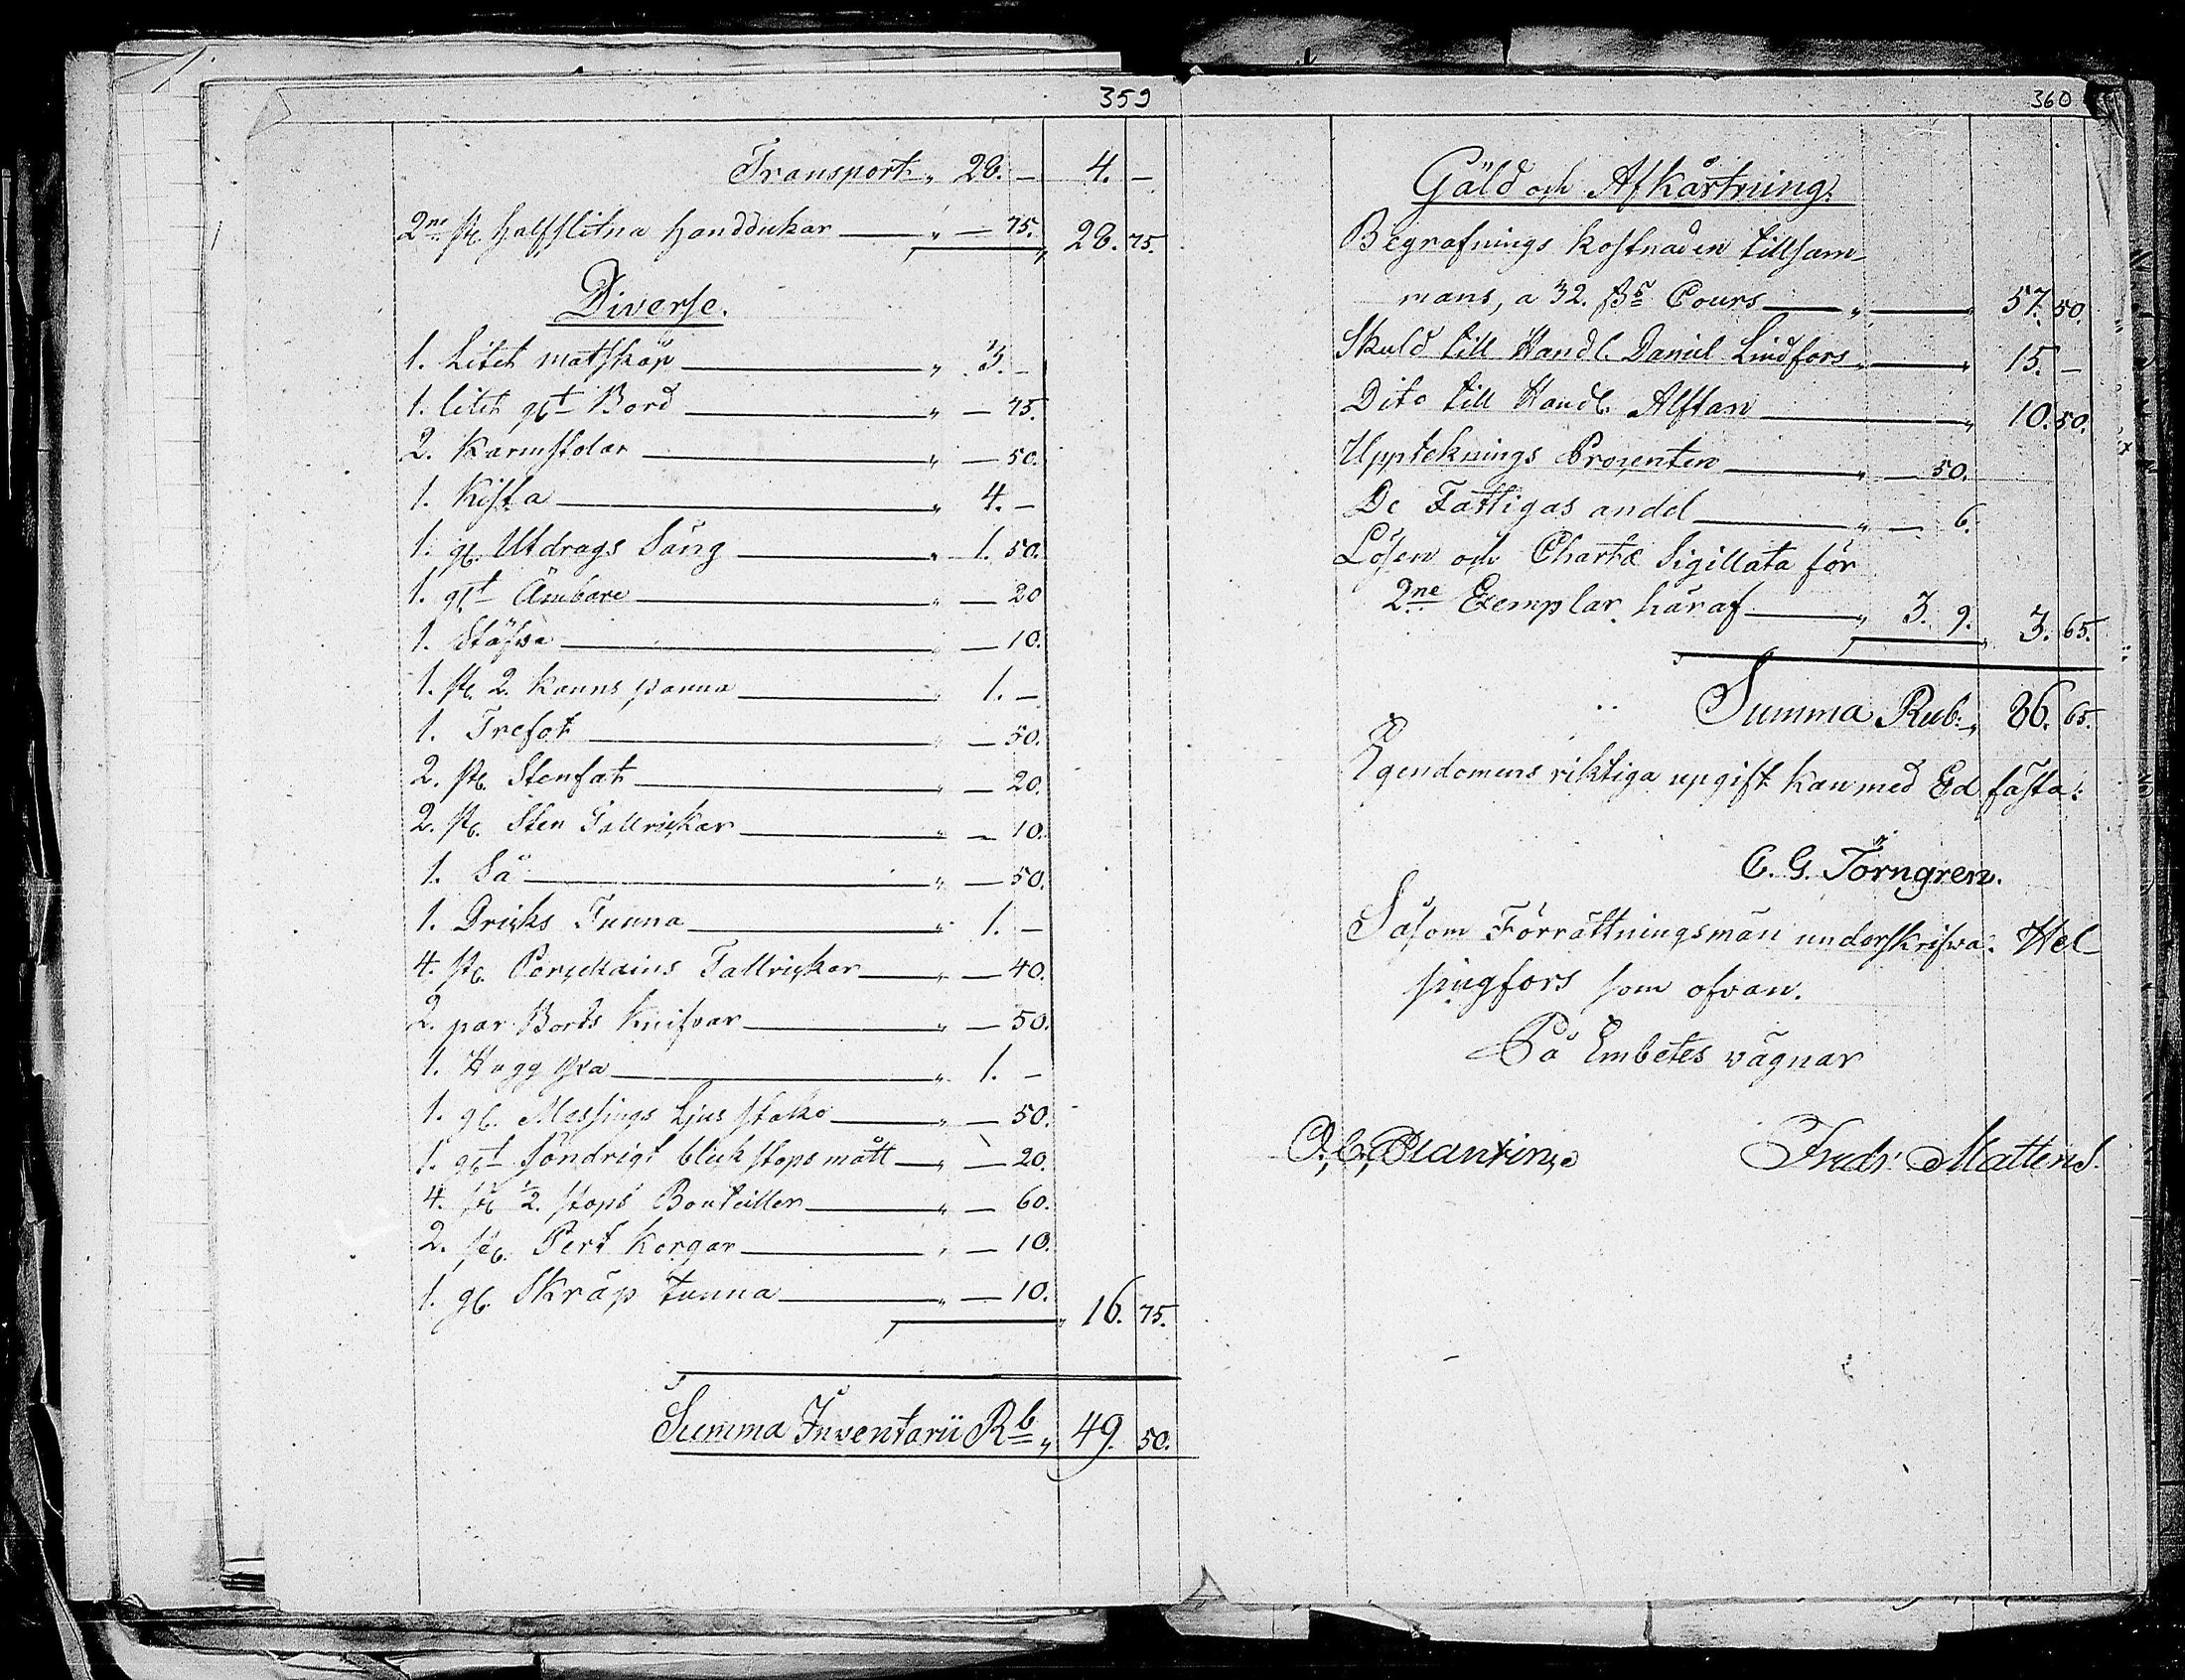 359
Transport „ 28. — 4. —
2ne st. halfslitna handdukar „ — 75. „ 28. 75.
Diverse.
1. Litet matskåp „ 3. —
1. litet glt Bord „ — 75.
2. Karmstolar „ — 50.
1. Kista „ 4. —
1. gl. Utdrags Säng „ 1. 50.
1. glt Ämbare „ — 20
1. Stäfva „ — 10.
1. st. 2. kanns panna „ 1. —
1. Trefot „ — 50.
2. st. Stenfat „ — 20.
2. st. Sten Tallrickar „ — 10.
1. Så „ — 50.
1. Dricks Tunna „ 1. —
4. st. Porcellains Tallrickar „ — 40.
2. par Bords Knifvar „ — 50.
1. Hugg yxa „ 1. —
1. gl. Messings Ljus stake „ — 50.
1. glt Söndrigt bleck stops mått „ — 20.
4. st. ½ stops Bouteiller „ — 60.
2. st. Pert korgar „ — 10.
1. gl. Skräp tunna „ — 10. „ 16. 75.
Summa Inventarii Rb „ 49. 50.
360
Gäld och Afkårtning.
Begrafnings kostnaden tillsam-
mans, a 32. ßs Cours „ „ 57. 50.
Skuld till Handl. Daniel Lindfors „ „ 15. —
Dito till Handl. Alftan „ 10. 50.
Uppteknings Procenten „ — 50.
De Fattigas andel „ — 6.
Lösen och Chartæ Sigillata för
2ne Exemplar häraf „ 3. 9. „ 3. 65.
Summa Rub. „ 86. 65.
Egendomens riktiga upgift kan med Ed fästa:
C. G. Törngren.
Såsom Förrättningsmän underskrifva. Hel-
singfors som ofvan.
På Embetes vägnar
Plantin Fredr. Mattens.